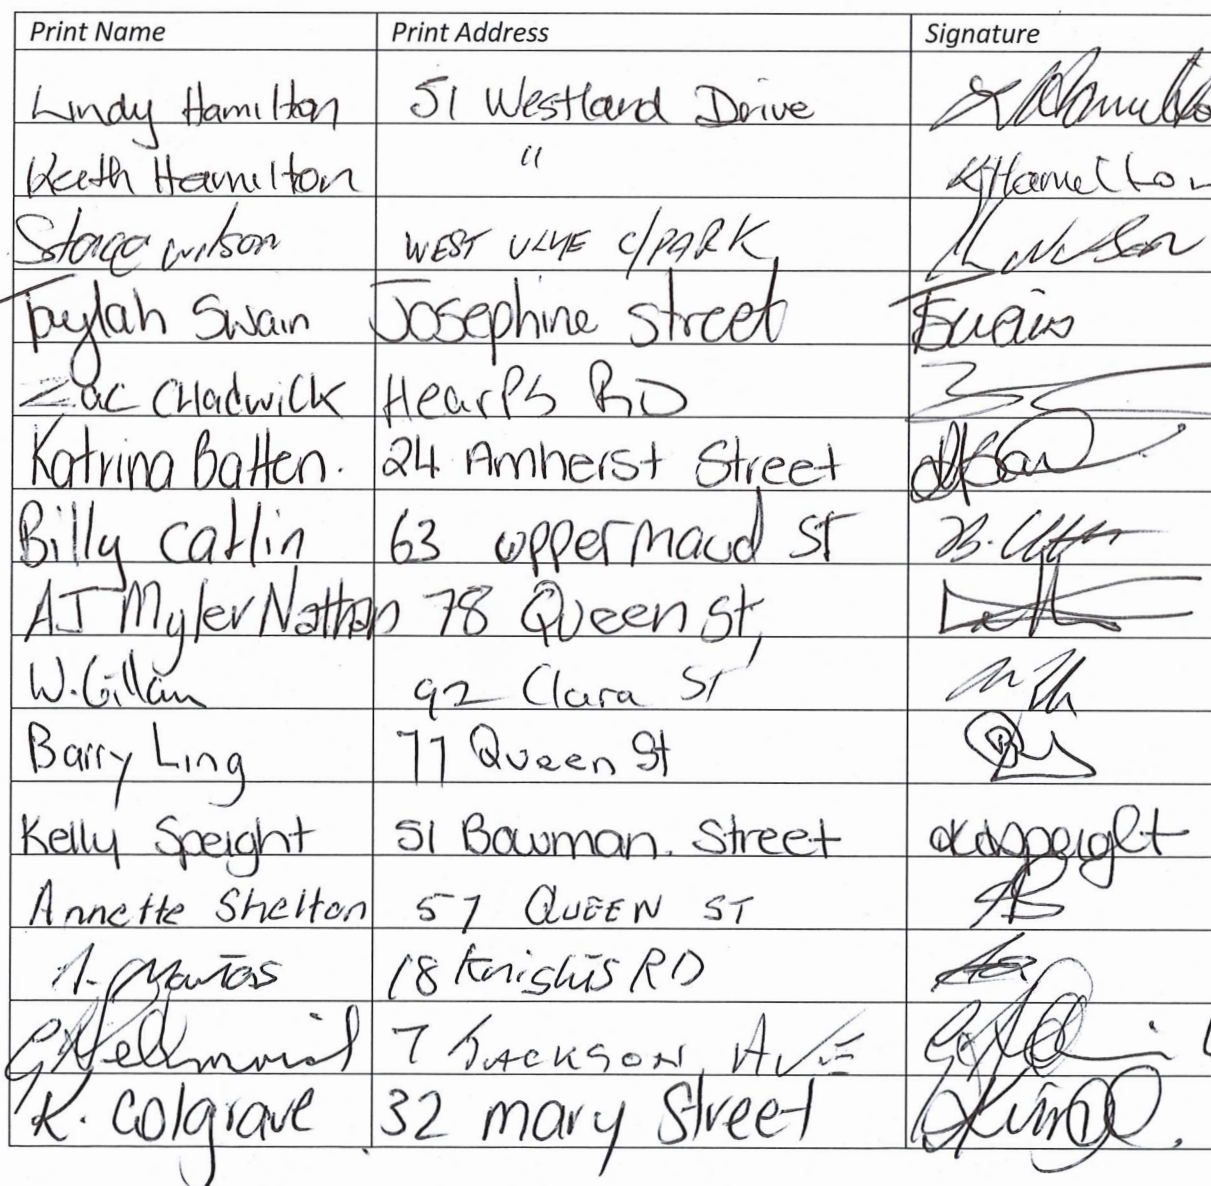 Print Name Print Address Signature
Lindy Hamilton 51 Westland Drive
Keith Hamilton " KHamilton
wilson WEST ULVE C/PARK
Taylah Swain Josephine Street TSwain
Zac Chadwick Hearps RD
Katrina Batten. 24 Amherst Street
Billy Catlin 63 uppermaud ST
AJ Myler Nathan 78 Queen St,
W. Gillam 92 Clara ST
Barry Ling 77 Queen St
Kelly Speight 51 Bowman. Street kdspeight
Annette Shelton 57 QUEEN ST AS
18 Knights RD
7 JACKSON AVE
K. Colgrave 32 mary Street